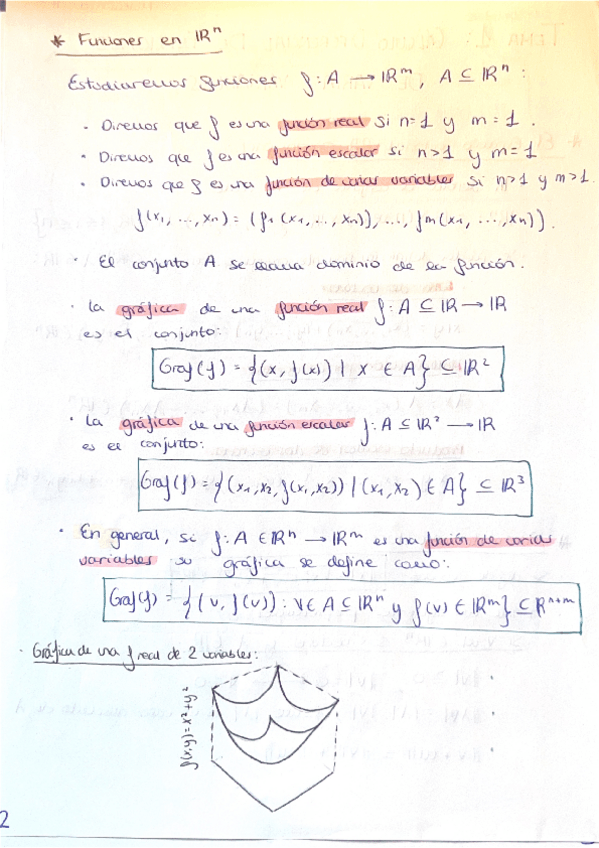 * Funciones en ℝⁿ
Estudiaremos funciones f: A → ℝᵐ, A ⊆ ℝⁿ:
· Diremos que f es una función real si n=1 y m=1.
· Diremos que f es una función escalar si n>1 y m=1
· Diremos que f es una función de varias variables si n>1 y m>1.
f(x₁, ..., xₙ) = (f₁(x₁, ..., xₙ)), ..., fm(x₁, ..., xₙ)).
· El conjunto A se llama dominio de la función.
· La gráfica de una función real f: A ⊆ ℝ → ℝ
es el conjunto:
Graf(f) = {(x, f(x)) | x ∈ A} ⊆ ℝ²
· La gráfica de una función escalar f: A ⊆ ℝ² → ℝ
es el conjunto:
Graf(f) = {(x₁,x₂,f(x₁,x₂)) | (x₁,x₂) ∈ A} ⊆ ℝ³
· En general, si f: A ∈ ℝⁿ → ℝᵐ es una función de varias
variables su gráfica se define como:
Graf(f) = {(v, f(v)): v ∈ A ⊆ ℝⁿ y f(v) ∈ ℝᵐ} ⊆ ℝⁿ⁺ᵐ
· Gráfica de una f real de 2 variables:
f(x,y)=x²+y²
2